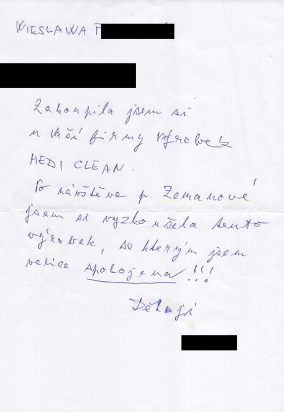 WIESLAWA P
Zakoupila jsem si
u Vaší firmy výrobek
MEDI CLEAN.
Po návštěve p. Zemanové
jsem si vyzkoušela tento
výrobek, se kterým jsem
velice spokojena!!!
Děkuji